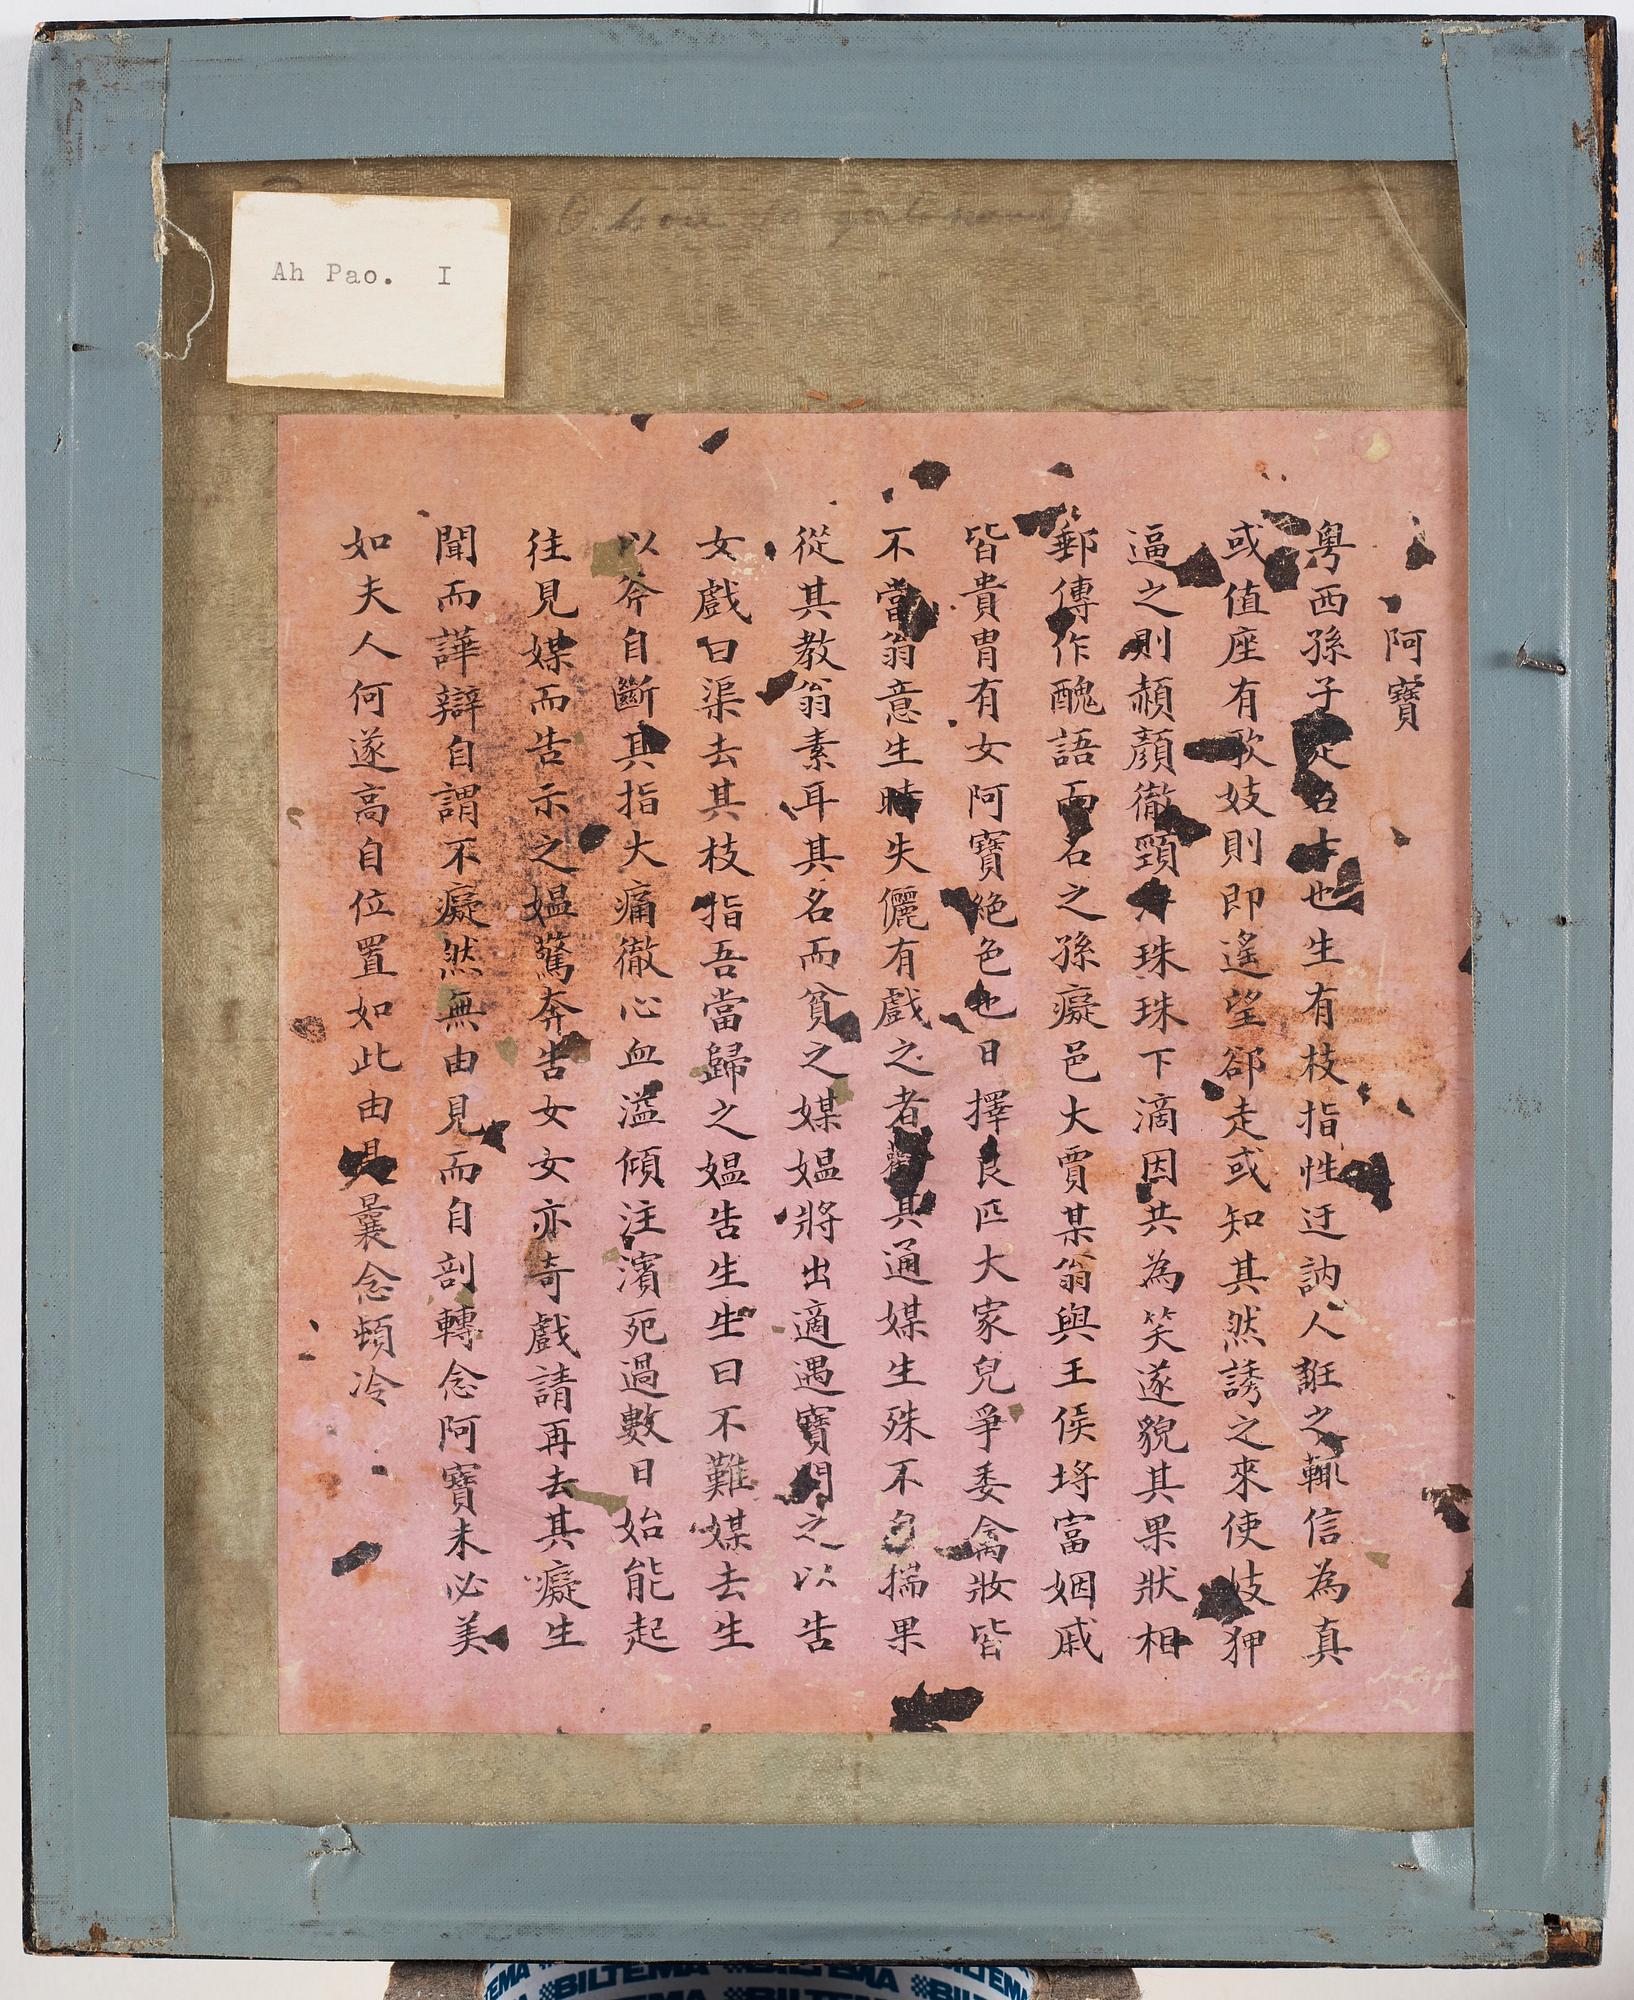 Ah Pao. I
阿寶
粤西孫子楚名士也生有枝指性迂訥人誑之輒信為真
或值座有歌妓則即遙望郤走或知其然誘之來使妓狎
逼之則赬顏徹頸汗珠珠下滴因共為笑遂貌其果狀相
郵傳作醜語而名之孫癡邑大賈某翁與王侯埓富姻戚
皆貴冑有女阿寶絕色也日擇良匹大家兒爭委禽妝皆
不當翁意生時失儷有戲之者勸其通媒生殊不自揣果
從其教翁素耳其名而貧之媒媼將出適遇寶問之以告
女戲曰渠去其枝指吾當歸之媼告生生曰不難媒去生
以斧自斷其指大痛徹心血溢傾注濱死過數日始能起
往見媒而告示之媼驚奔告女女亦奇戲請再去其癡生
聞而譁辯自謂不癡然無由見而自剖轉念阿寶未必美
如天人何遂高自位置如此由是曩念頓冷
BILTEMA BILTEMA BILTEMA BILTEMA